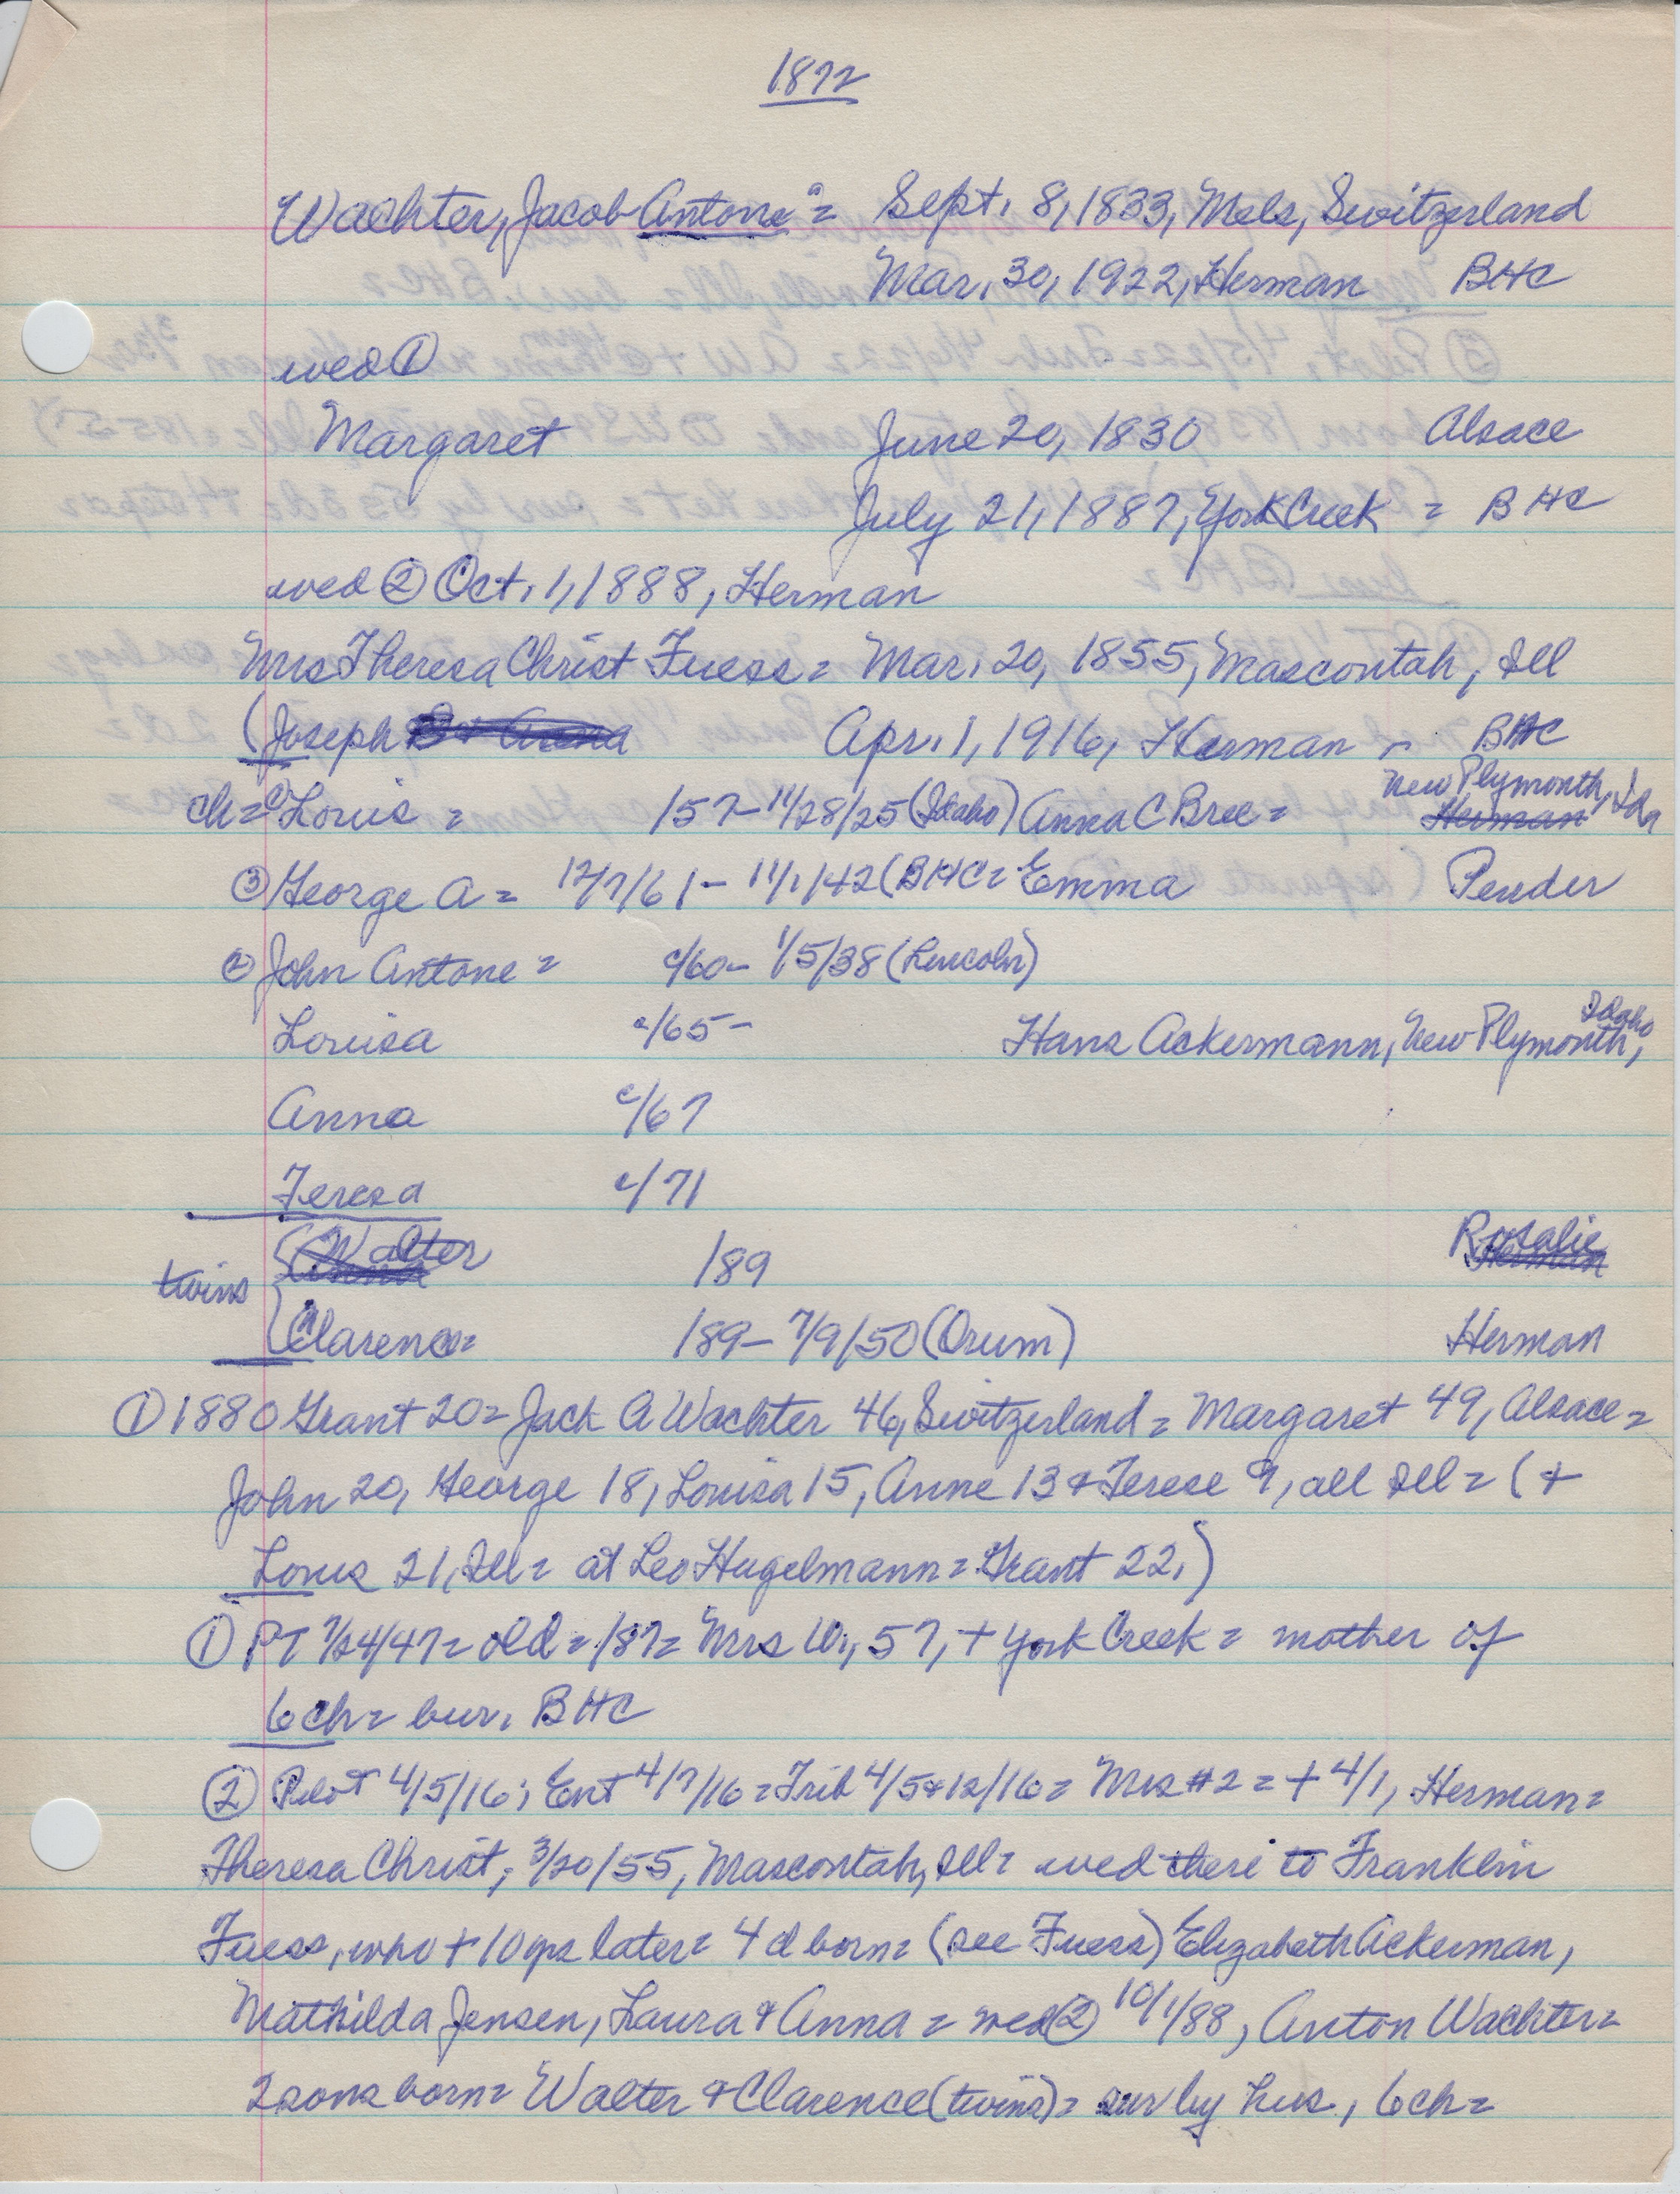 1872
Wachter, Jacob Antone = Sept. 8, 1833, Mels, Switzerland
Mar. 30, 1922, Herman BHC
wed ①
Margaret June 20, 1830 Alsace
July 21, 1887, York Creek = BHC
wed ② Oct. 1, 1888, Herman
Mrs Theresa Christ Fuess = Mar. 20, 1855, Mascoutah, Ill
(Joseph Apr. 1, 1916, Herman - BHC
ch = ① Louis = /57 - 11/28/25 (Idaho) Anna C Bree = New Plymouth, Ida
Herman
③ George A = 12/7/61 - 11/1/42 (BHC = Emma Pender
② John Antone = c/60 - 1/5/38 (Lincoln)
Louisa c/65 - Hans Ackermann, New Plymouth, Idaho
Anna c/67
Teresa c/71
twins { Walter /89 Rosalie
Herman
Clarence = /89 - 7/9/50 (Orum) Herman
① 1880 Grant 20 = Jack A Wachter 46, Switzerland = Margaret 49, Alsace =
John 20, George 18, Louisa 15, Anne 13 & Terese 9, all Ill = (+
Louis 21, Ill = at Leo Hugelmann = Grant 22.)
① PT 7/24/47 = old = /87 = Mrs W., 57, + York Creek = mother of
6 ch = bur. BHC
② Pilot 4/5/16; Ent 4/7/16 = Trib 4/5 & 12/16 = Mrs #2 = + 4/1, Herman =
Theresa Christ, 3/20/55, Mascoutah, Ill = wed there to Franklin
Fuess, who + 10 yrs later = 4 d born = (see Fuess) Elizabeth Ackerman,
Mathilda Jensen, Laura & Anna = wed ② 10/1/88, Anton Wachter =
2 sons born = Walter & Clarence (twins) = sur by hus., 6 ch =